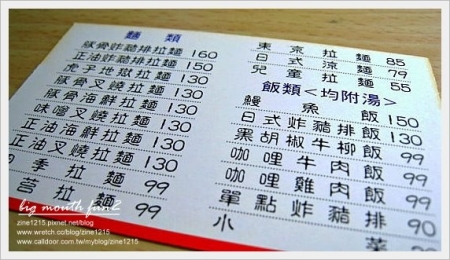 麵類
豚骨炸豬排拉麵 160
正油炸豬排拉麵 150
虎之地獄拉麵 130
豚骨叉燒拉麵 130
豚骨海鮮拉麵 130
味噌叉燒拉麵 130
正油海鮮拉麵 130
正油叉燒拉麵 130
四季拉麵 99
拉麵 99
東京拉麵 85
日式涼麵 79
兒童拉麵 55
飯類<均附湯>
鰻魚飯 150
日式炸豬排飯 130
黑胡椒牛柳飯 99
咖哩牛肉飯 99
咖哩雞肉飯 99
單點炸豬排 90
小菜
big mouth fun2
zine1215.pixnet.net/blog
www.wretch.cc/blog/zine1215
www.calldoor.com.tw/myblog/zine1215